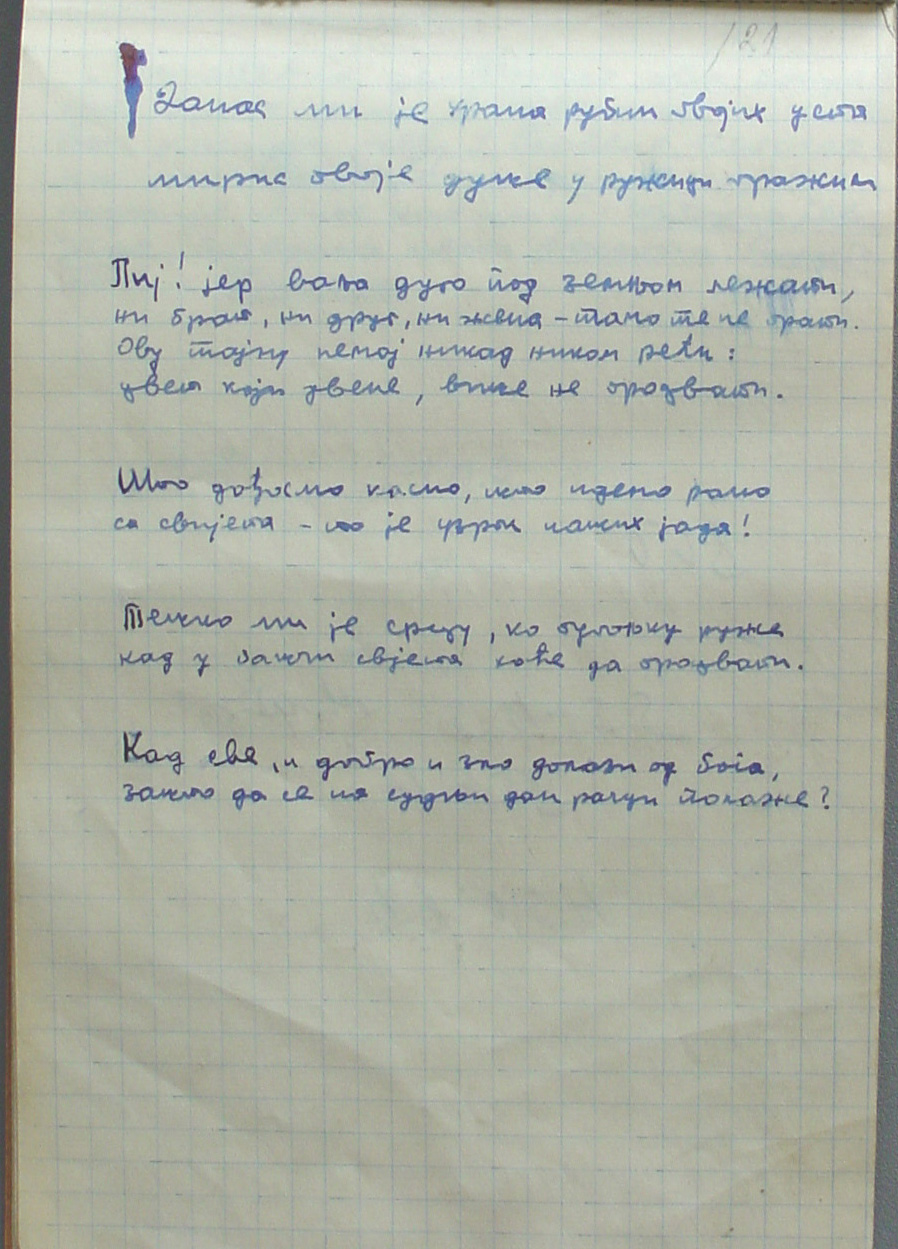 121
Данас ми је храна рубин твојих уста
мирис твоје душе у ружици тражим
Пиј! јер ваља дуго под земљом лежати,
ни брат, ни друг, ни жена – тамо те не прати.
Ову тајну немој никад ником рећи:
цвет који увене, више не процвати.
Што дођосмо касно, што идемо рано
са свијета – то је узрок наших јада!
Тешко ми је срцу, ко пупољку руже
кад у башти свјета хоће да процвати.
Кад све, и добро и зло долази од бога,
зашто да се на судњи дан рачун полаже?